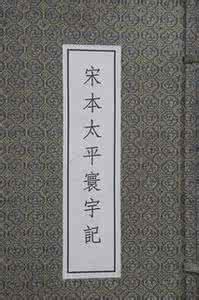 宋本太平寰宇記